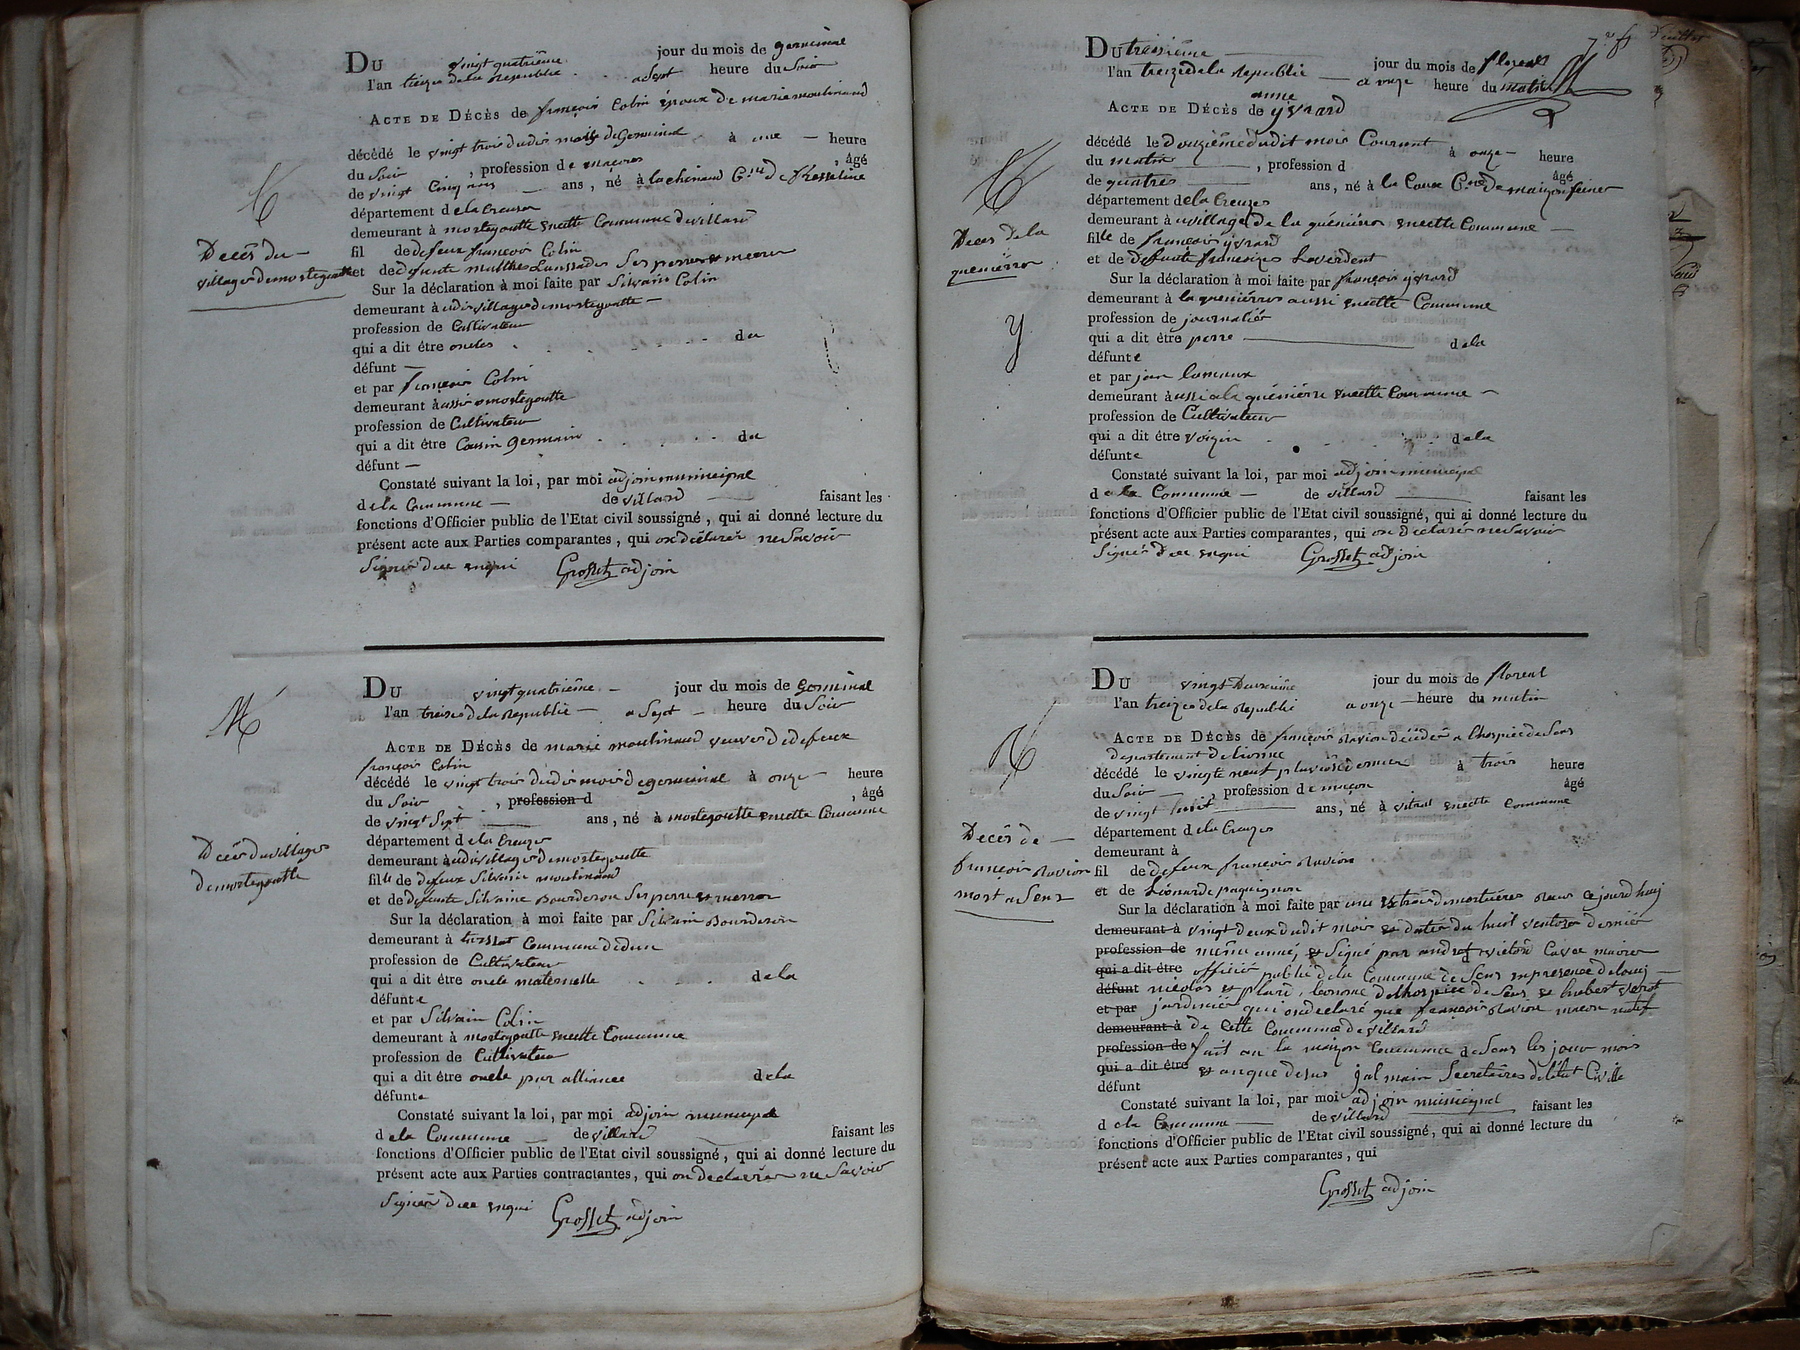 Du vingt quatrième jour du mois de germinal
l'an treize de la republie a Sept heure du Soir
Acte de Décès de françois Colin époux de marie moulinaud
décédé le vingt trois dudit mois de Germinal à une — heure
du Soir , profession de maçons , âgé
de vingt Cinq ans ans, né à la chinaud C.ne de fresseline
département de la Creuse
demeurant à mortegoutte encette Commune duvillard
fil de defeux françois Colin
et de defunte Ses perre et meere
Sur la déclaration à moi faite par Silvain Colin
demeurant à udis village demortegoutte —
profession de Cultivateur
qui a dit être oncles du
défunt —
et par françois Colin
demeurant à aussi amortegoutte
profession de Cultivateur
qui a dit être Cousin Germain du
défunt —
Constaté suivant la loi, par moi adjoin municipal
d ela Commune — de villard faisant les
fonctions d'Officier public de l'Etat civil soussigné, qui ai donné lecture du
présent acte aux Parties comparantes, qui on declarér ne Savoir
Signer dece enqui Grosset adjoin
Decès du —
village demortegoutte
Du vingt quatrième — jour du mois de Germinal
l'an treize de la republie — a Sept — heure du Soir
Acte de Décès de marie moulinaud veuve de defeux
françois Colin
décédé le vingt trois dudis mois degerminal à onze — heure
du Soir , profession d , âgé
de vingt Sept ans, né à mortegoutte encette Commune
département d ela Creuze
demeurant à udis village demortegoutte
fille de defeux Silvain moulinaud
et de defunte Silvaine Bourderon Ses perre et merre
Sur la déclaration à moi faite par Silvain Bourderon
demeurant à Commune dedun
profession de Cultivateur
qui a dit être oncle maternelle de la
défunte
et par Silvain Colin
demeurant à mortegoutte encette Commune
profession de Cultivateur
qui a dit être oncle par alliance dela
défunte
Constaté suivant la loi, par moi adjoin municipal
d ela Commune — de villard faisant les
fonctions d'Officier public de l'Etat civil soussigné, qui ai donné lecture du
présent acte aux Parties contractantes, qui on declarér ne Savoir
Signér dece enqui Grosset adjoin
Decès du village
demortegoutte
Du treisième jour du mois de floreal
l'an treize de la Republie — a onze heure du matin
anne
Acte de Décès de yvrard
décédé le Douzième dudit mois Courant à onze — heure
du matin , profession d âgé
de quatres ans, né à la Coux C.ne de maizonfeine
département dela Creuze
demeurant à uvillage de la quénière encette Commune —
fille de françois yvrard
et de defunte françoizes Laverdent
Sur la déclaration à moi faite par françois yvrard
demeurant à la quenièrre aussi encette Commune
profession de journaliér
qui a dit être perre de la
défunte
et par jean Lameaux
demeurant à ussi ala quénièrre encette Commune —
profession de Cultivateur
qui a dit être voizin dela
défunte
Constaté suivant la loi, par moi adjoin municipal
d e la Commune — de villard faisant les
fonctions d'Officier public de l'Etat civil soussigné, qui ai donné lecture du
présent acte aux Parties comparantes, qui on declarér ne Savoir
Signér dece enqui Grosset adjoin
Decès dela
quenièrre
Du vingt Deuxième jour du mois de floreal
l'an treize dela Republie a onze — heure du matin
Acte de Décès de françois Navion décédé a lhospice de Sens
departement de lionne
décédé le vingte neuf pluviose dernier à trois heure
du Soir — , profession de maçon âgé
de vingt huit ans, né à vilard encette Commune
département d ela Creuze
demeurant à
fil de defeux françois Navion
et de Léonarde paquignon
Sur la déclaration à moi faite par une Extrais demortuères Reçus cejourdhuy
demeurant à vingt deux dudit mois et dattée du huit ventoze dernièr
profession de même année, et Signé par andré victoir maires
qui a dit être officier public dela Commune de Sens enpresence delouis —
défunt nicolas Econome delhospice de Sens et hubert
et par jardiniér qui ondeclaré que françois Navion macon natif
demeurant à de Cette Commune de villard
profession de fait en la maizon Commune de Sens les jour mois
qui a dit être et anque dessus Secretaires deletat Civille
défunt
Constaté suivant la loi, par moi adjoin municipal faisant les
d ela Commune de villard
fonctions d'Officier public de l'Etat civil soussigné, qui ai donné lecture du
présent acte aux Parties comparantes, qui
Grosset adjoin
Decès de —
françois Navion
mort a Sens